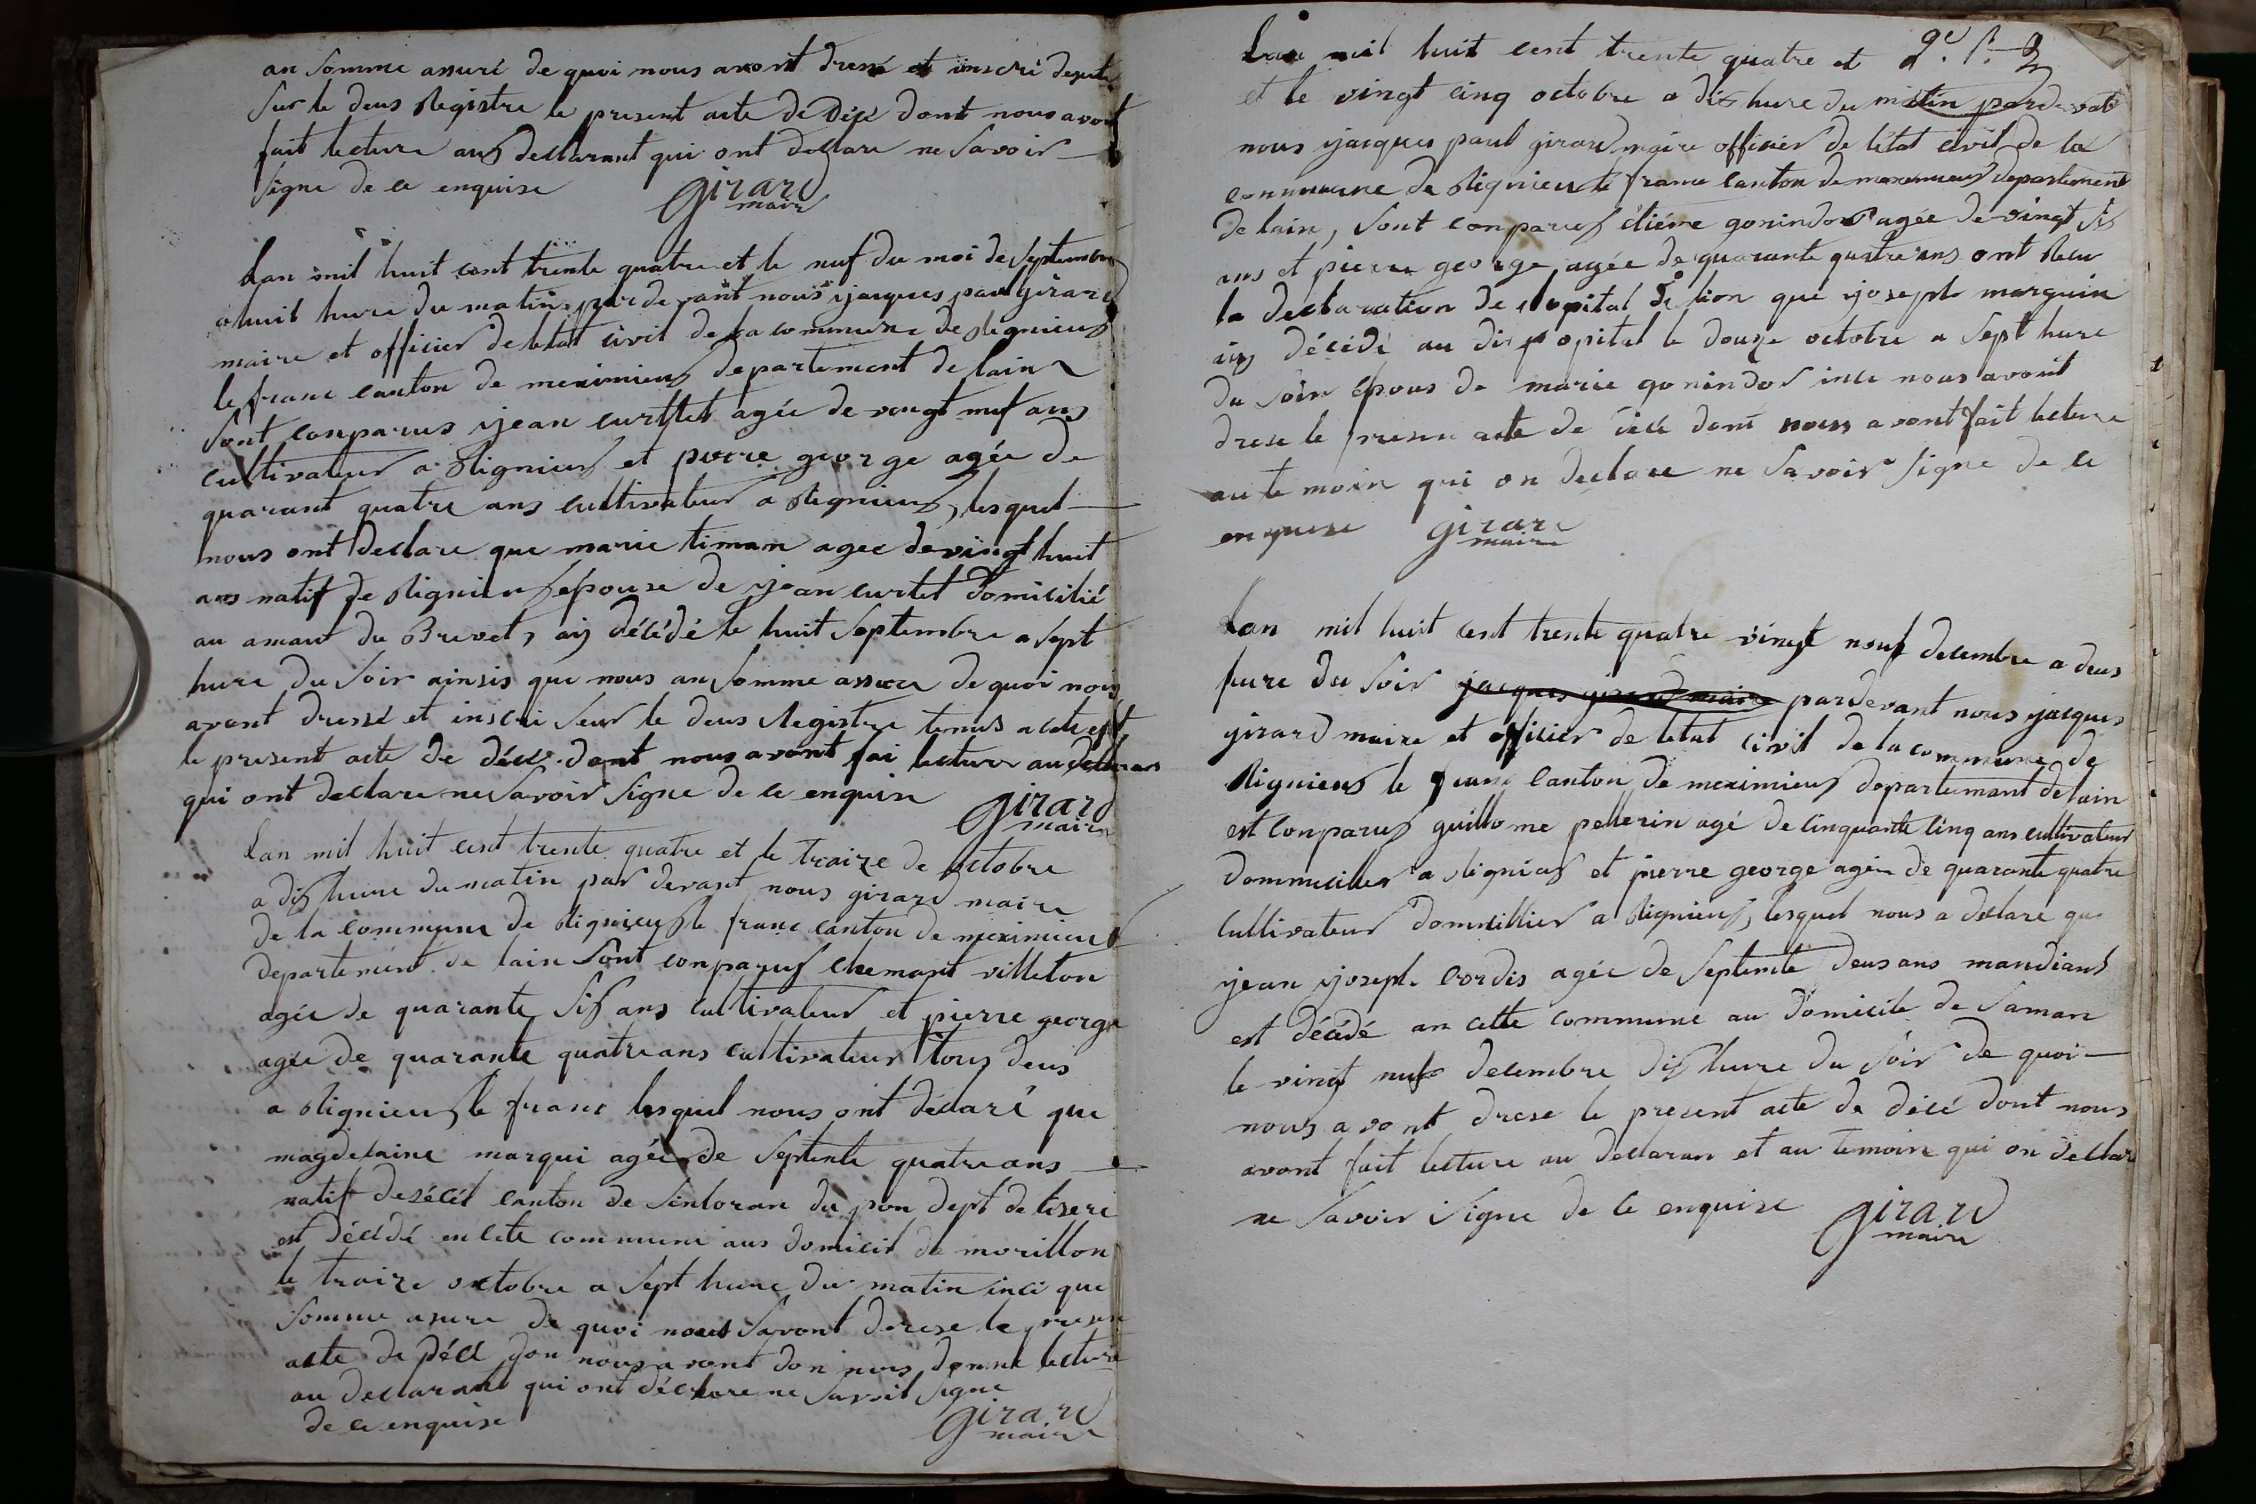 an somme assuré de quoi nous avont dressé et inscri
sur le deus Registre le present acte de décé dont nous avont
fait lecture aus declarant qui ont declare ne savoir
signe de ce enquise Girard
maire
Lan mil huit cent trente quatre et le nuf du moi de septembre
a huit hure du matin par devant nous jacques paul girard
maire et officier de letat civil de la commune de Rignieus
le franc canton de meximieus departement de lain
sont conparus jean curttet agée de vengt nuf ans
cultivateur a Rignieus et pierre george agée de
quarant quatre ans cultivateur a Rignieus, lesquel
nous ont declare que marie timam agee de vingt huit
ans natif de Rignieus epouse de jean curtet domicilié
au amant du Brevet, décédé le huit septembre a sept
hure du soir ainsis que nous an somme assure de quoi nous
avont dressé et inscri seur le deus Registre tenus
le present acte de décé dont nous avont fai lecture au
qui ont declare ne savoir signe de ce enquise Girard
maire
Lan mil huit cent trente quatre et le traize de octobre
a dis hure du matin par devant nous girard maire
de la commune de Rignieus le franc canton de meximieus
departement de lain sont conparus clemant villeton
agée de quarante sis ans cultivateur et pierre george
agée de quarante quatre ans cultivateur tous deus
a Rignieus le franc lesquel nous ont déclaré que
magdelaine marqui agée de septente quatre ans
natif de canton de du pon dept de lisere
est décédé en cete commune aus domicil de morillon
le traize octobre a sept hure du matin insi que
somme asure de quoi nous savont drese le presen
acte de décé don nous avont don nous donné lecture
au declarant qui ont déclare ne savoit signe
de ce enquise Girard
maire
Lan mil huit cent trente quatre et
et le vingt cinq octobre a dis hure du matin par devat
nous jacques paul girard maire officier de létat civil de la
commune de Rignieus le franc canton de meximieus departement
de lain, sont conparus gonindor agée de vingt sis
ans et pierre george agée de quarante quatre ans ont Recu
la declaration de lopital de lion que joseph marquin
décédé au dis opital le douze octobre a sept hure
du soir epous de marie gonindor insi nous avont
drese le presen acte de décé dont nous avont fait lecture
au te moin qui on declare ne savoir signe de ce
enquise Girard
maire
Lan mil huit cent trente quatre vingt neuf decembre a deus
hure du soir jacques girard maire pardevant nous jacques
girard maire et officier de letat civil de la commune de
Rignieus le franc canton de meximieus departement de lain
est conparus guillome pellerin agé de cinquante cinq ans cultivateur
dommicilier a Rignieus et pierre george agée de quarante quatre
cultivateur dommicillier a Rignieus, lesquel nous a declare que
jean joseph cordis agée de septente deus ans mandiant
est décédé an cette commune au domicile de saman
le vingt nuf decembre dis hure du soir de quoi
nous avont drese le present acte de décé dont nous
avont fait lecture au declaran et au temoin qui on declar
ne savoir signe de ce enquise Girard
maire